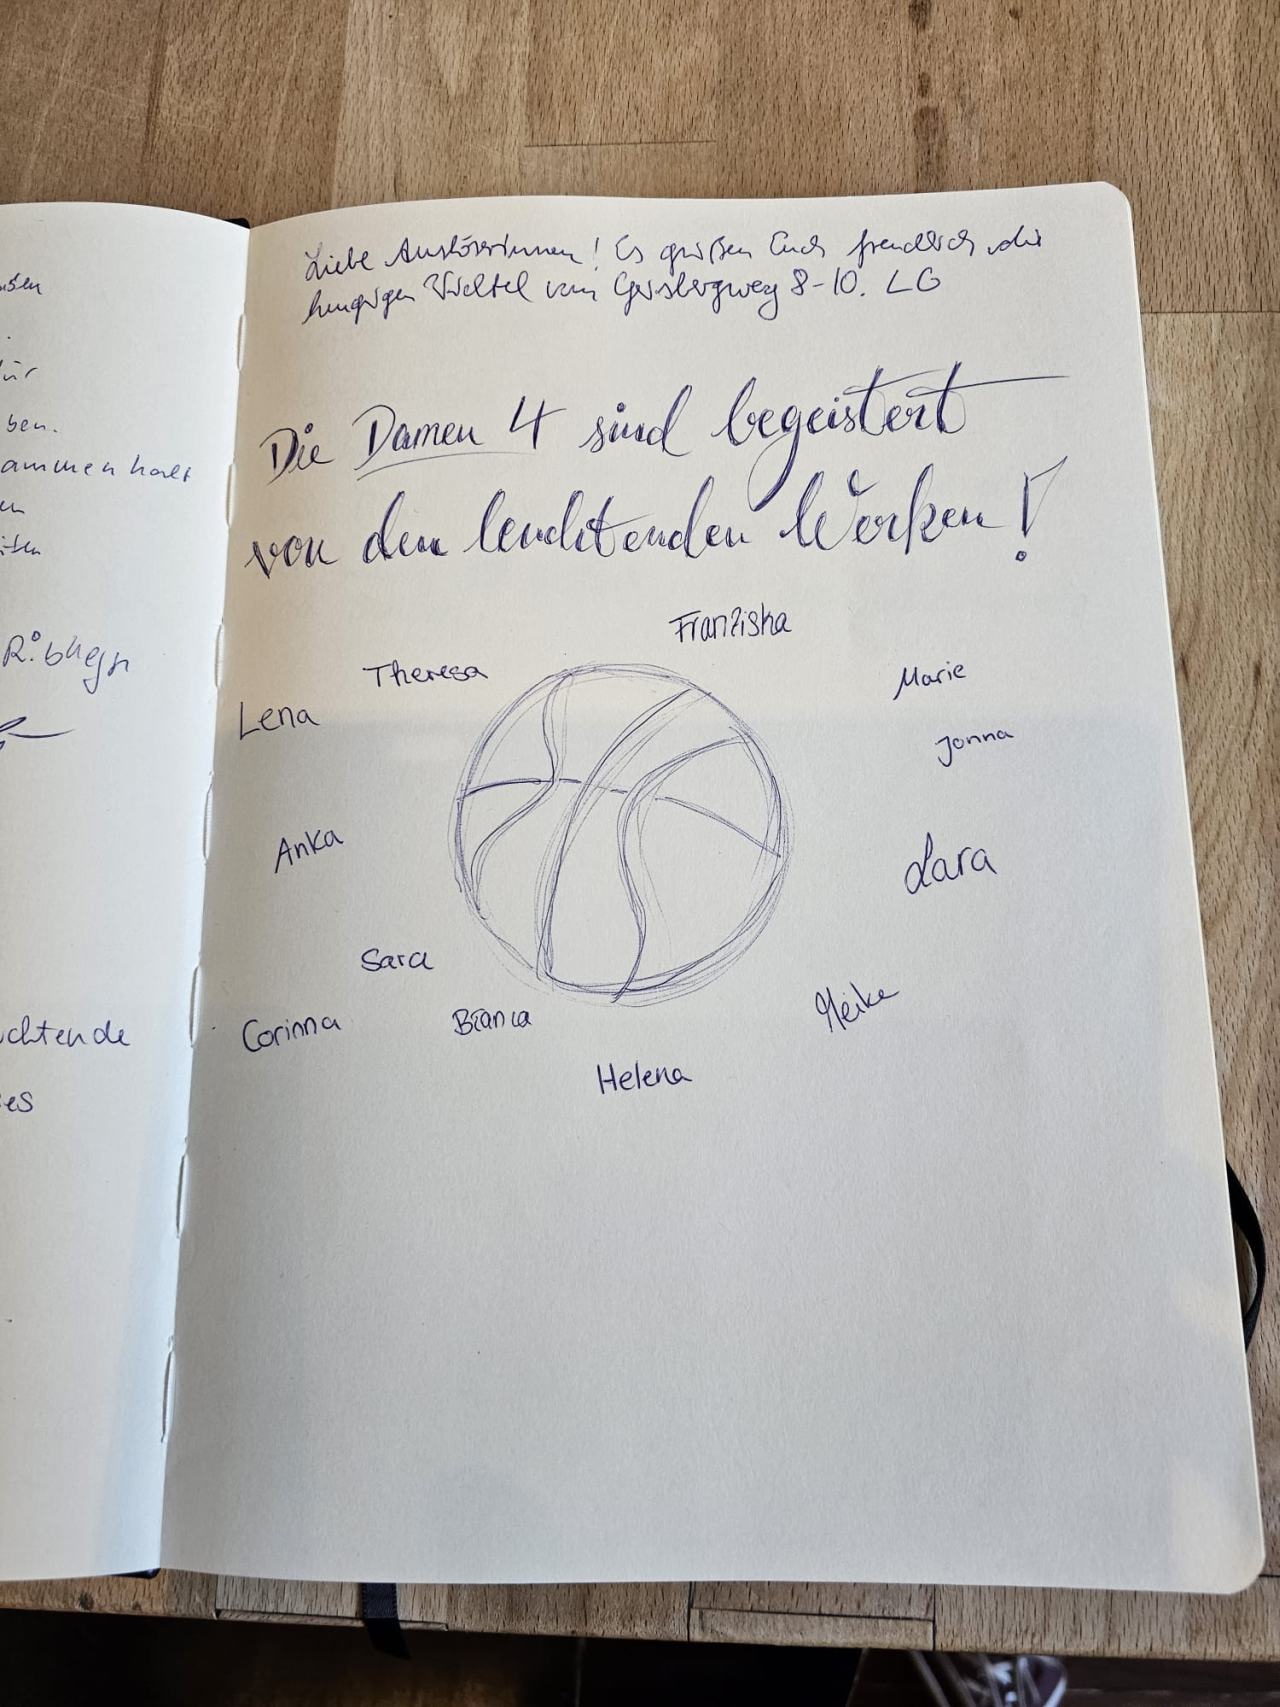 Liebe Auslöserinnen! Es grüßen Euch freundlich die
hungrigen vom 8-10. LG
Die Damen 4 sind begeistert
von den leuchtenden Werken!
Franziska
Theresa
Marie
Lena
Jonna
Anka
Lara
Sara
Meike
Corinna
Bianca
Helena
ür
ben.
ammenhalt
en
chtende
es